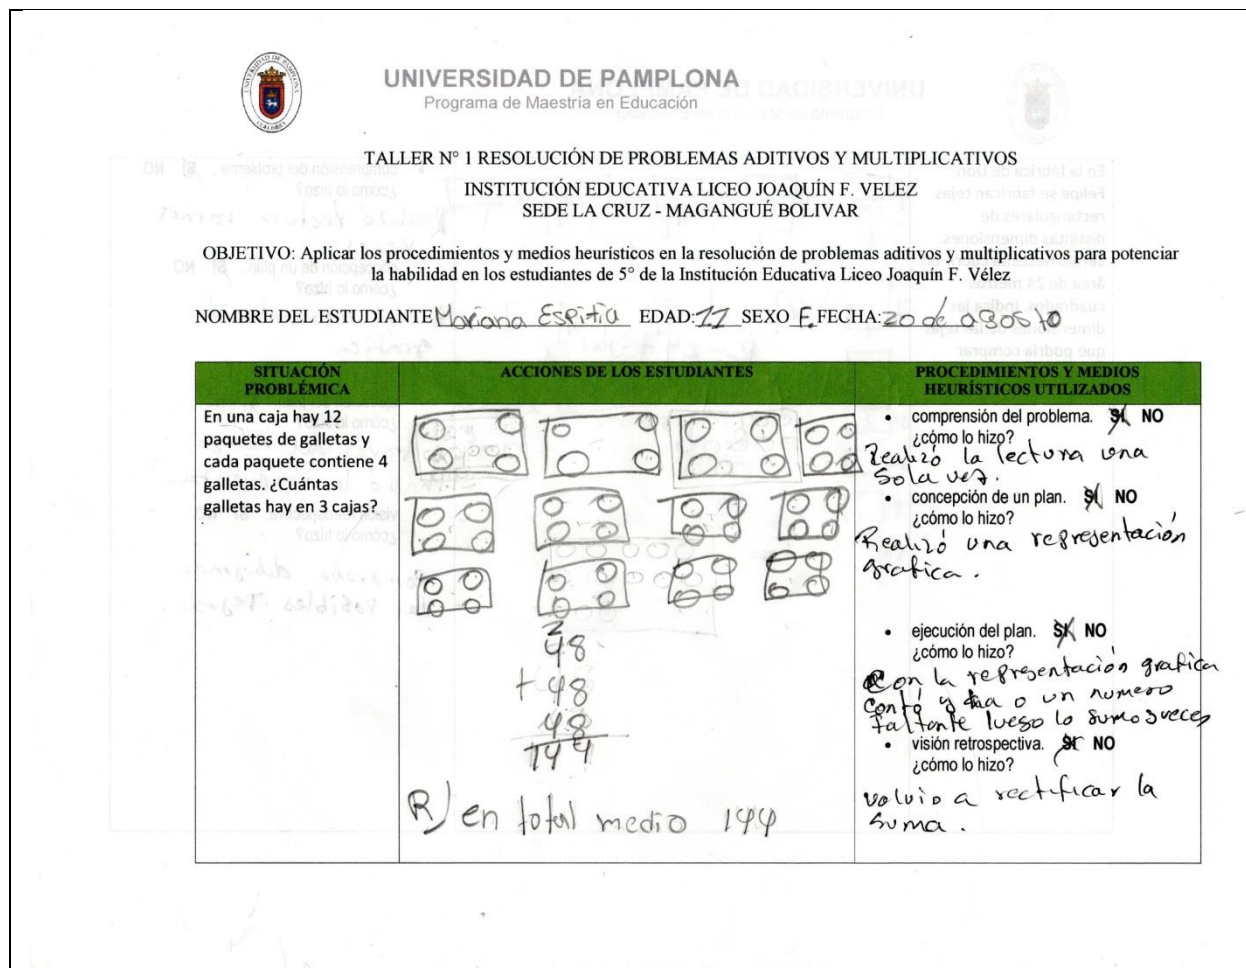 UNIVERSIDAD DE PAMPLONA
Programa de Maestría en Educación
TALLER N° 1 RESOLUCIÓN DE PROBLEMAS ADITIVOS Y MULTIPLICATIVOS
INSTITUCIÓN EDUCATIVA LICEO JOAQUÍN F. VELEZ
SEDE LA CRUZ - MAGANGUÉ BOLIVAR
OBJETIVO: Aplicar los procedimientos y medios heurísticos en la resolución de problemas aditivos y multiplicativos para potenciar
la habilidad en los estudiantes de 5° de la Institución Educativa Liceo Joaquín F. Vélez
NOMBRE DEL ESTUDIANTE Mariana Espitia EDAD: 11 SEXO F. FECHA: 20 de agosto
SITUACIÓN
PROBLÉMICA
En una caja hay 12
paquetes de galletas y
cada paquete contiene 4
galletas. ¿Cuántas
galletas hay en 3 cajas?
ACCIONES DE LOS ESTUDIANTES
2
48
+ 48
48
144
R) en total medio 144
PROCEDIMIENTOS Y MEDIOS
HEURÍSTICOS UTILIZADOS
• comprensión del problema. SI NO
¿cómo lo hizo?
Realizó la lectura una
Sola vez.
• concepción de un plan. SI NO
¿cómo lo hizo?
Realizó una representación
grafica.
• ejecución del plan. SI NO
¿cómo lo hizo?
Con la representación grafica
contó y o un numero
faltante luego lo sumo 3 veces
• visión retrospectiva. SI NO
¿cómo lo hizo?
volvio a rectificar la
suma.